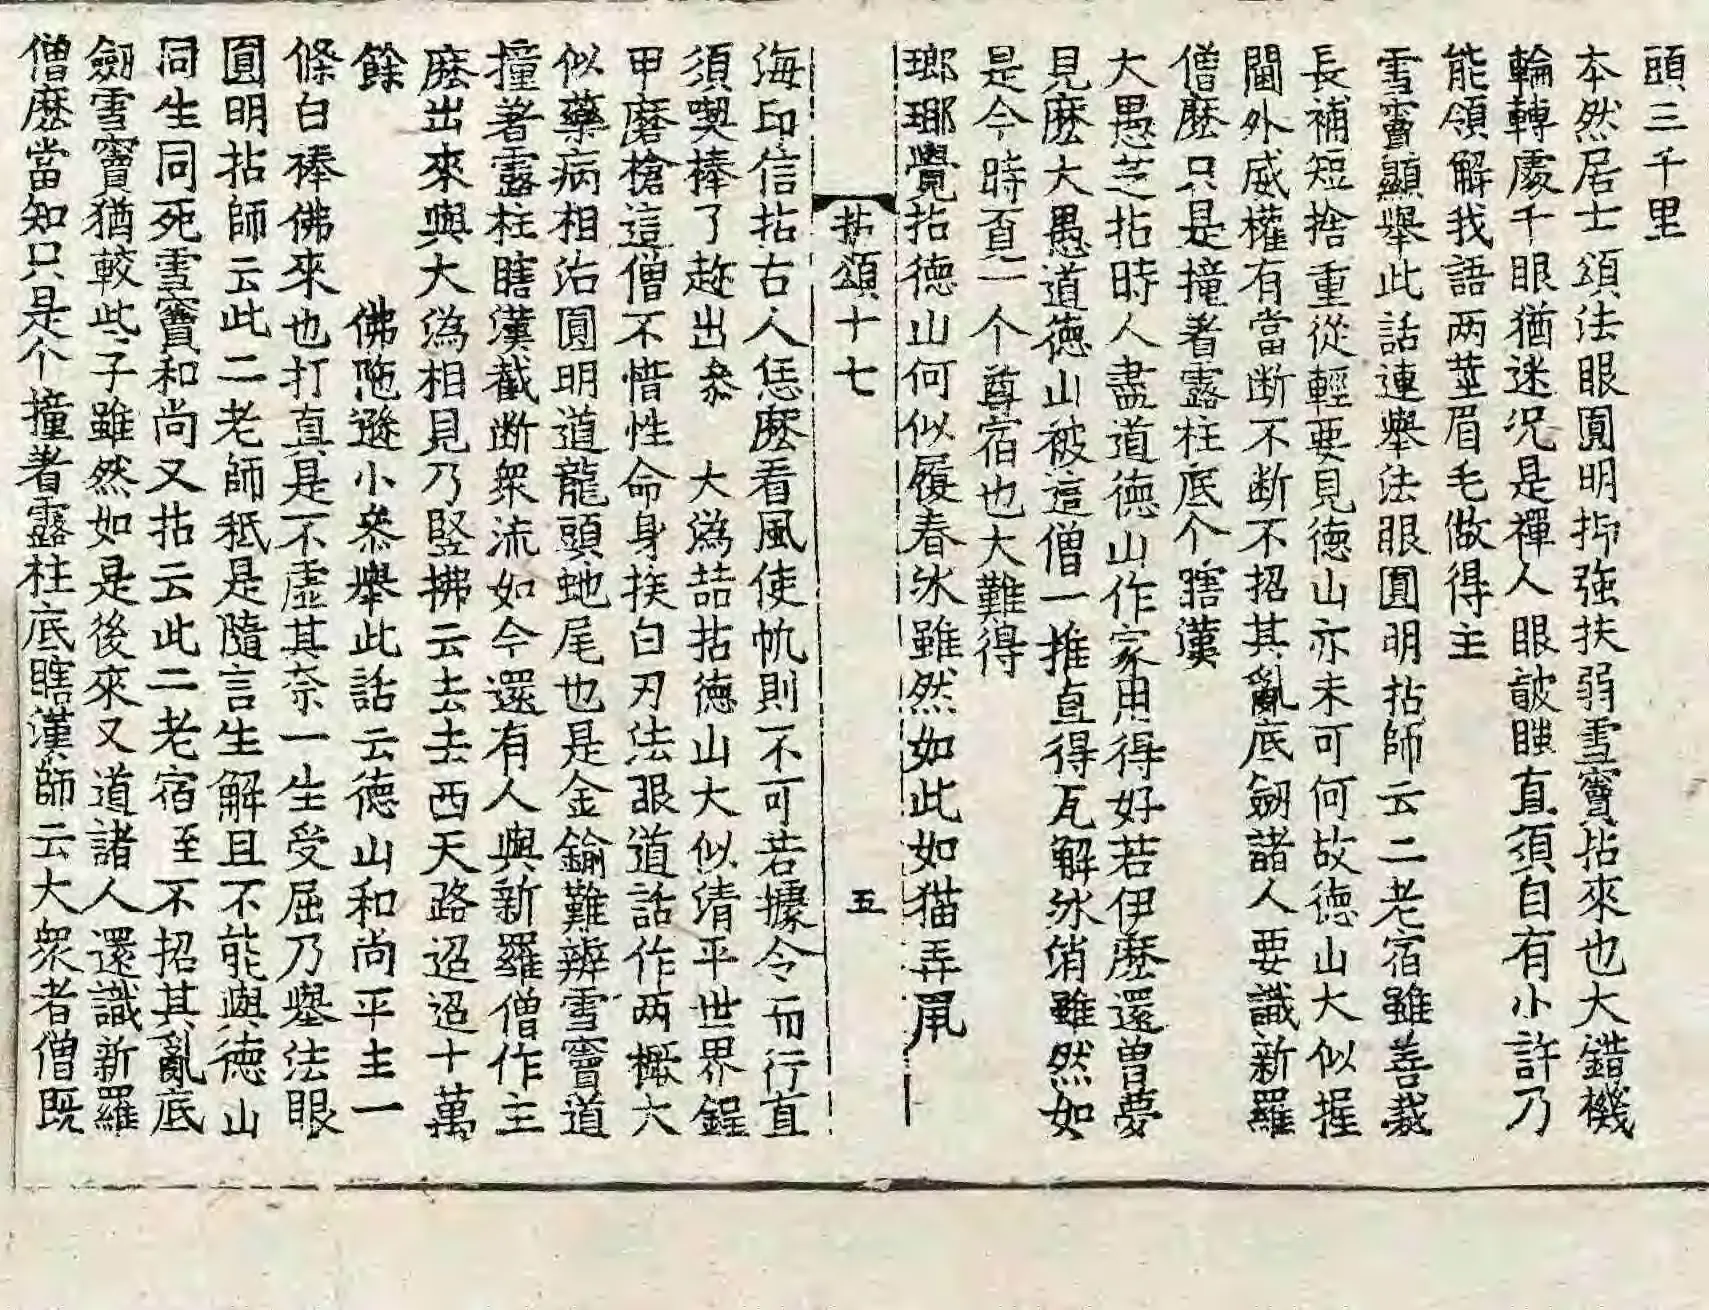 頭三千里
本然居士頌法眼圓明抑強扶弱雪竇拈來也大錯機
輪轉處千眼猶迷况是禪人眼皷瞇直須自有小許乃
能領解我語两莖眉毛做得主
雪竇顯舉此話連舉法眼圓明拈師云二老宿雖善裁
長補短捨重從輕要見德山亦未可何故德山大似握
閫外威權有當断不断不招其亂底劒諸人要識新羅
僧麽只是撞着露柱底个瞎漢
大愚芝拈時人盡道德山作家用得好若伊麽還曽夢
見麽大愚道德山被這僧一推直得瓦解氷消雖然如
是今時覓一个尊宿也大難得
瑯瑘覺拈德山何似履春氷雖然如此如猫弄鼡
拈頌十七 五
海印信拈古人恁麽看風使帆則不可若據令而行直
須喫棒了趂出叅 大潙喆拈德山大似清平世界錯
甲磨槍這僧不惜性命身挨白刃法眼道話作两橛大
似藥病相治圓明道龍頭虵尾也是金鍮難辨雪竇道
撞著露柱瞎漢截断衆流如今還有人與新羅僧作主
麽出來與大潙相見乃竪拂云去去西天路迢迢十萬
餘 佛陁遜小叅舉此話云德山和尚平生一
條白棒佛來也打直是不虛其奈一生受屈乃舉法眼
圓明拈師云此二老師秪是隨言生解且不能與德山
同生同死雪竇和尚又拈云此二老宿至不招其亂底
劒雪竇猶較些子雖然如是後來又道諸人還識新羅
僧麽當知只是个撞着露柱底瞎漢師云大衆者僧既